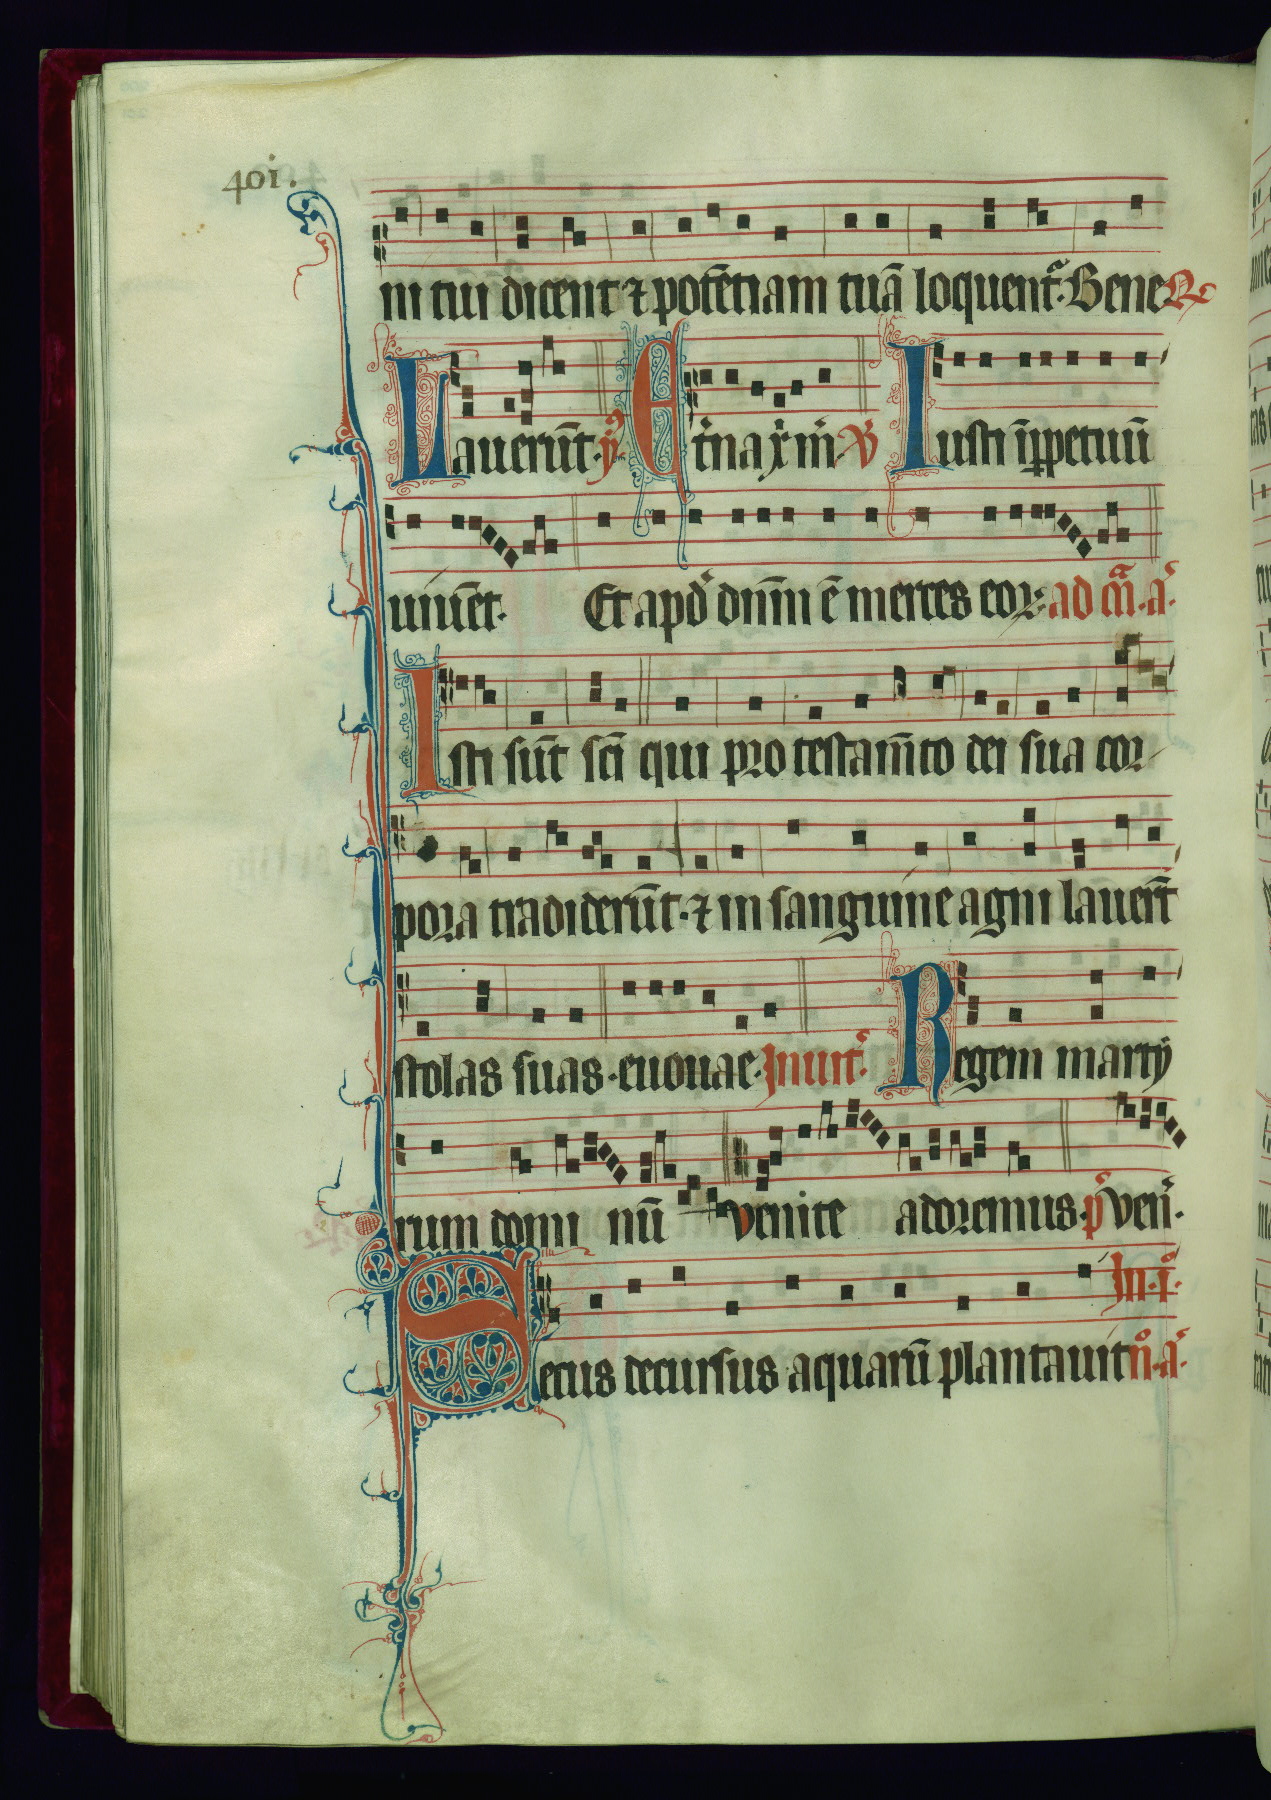 401.
ni tui dicent ⁊ potētiam tuā loquent᷑. Bene R᷒
Lauerūt. ẏ Et᷑na xp̄i m̄. V̄ Iusti ī ꝑpetuū
uiuēt. Et apd᷑ dn̄m ē merces eoꝝ. ad m̄. a᷑.
Isti sūt sc̄i qui pro testam̄to dei sua cor
pora tradiderūt. ⁊ in sanguine agni lauer̄t
stolas suas. euouae. Inuit᷑. Regem marty
rum domi nū Venite adoremus. p̄᷑ Ven᷑.
In. i᷑.
Secus decursus aquarū plantauit n̊. a᷑.